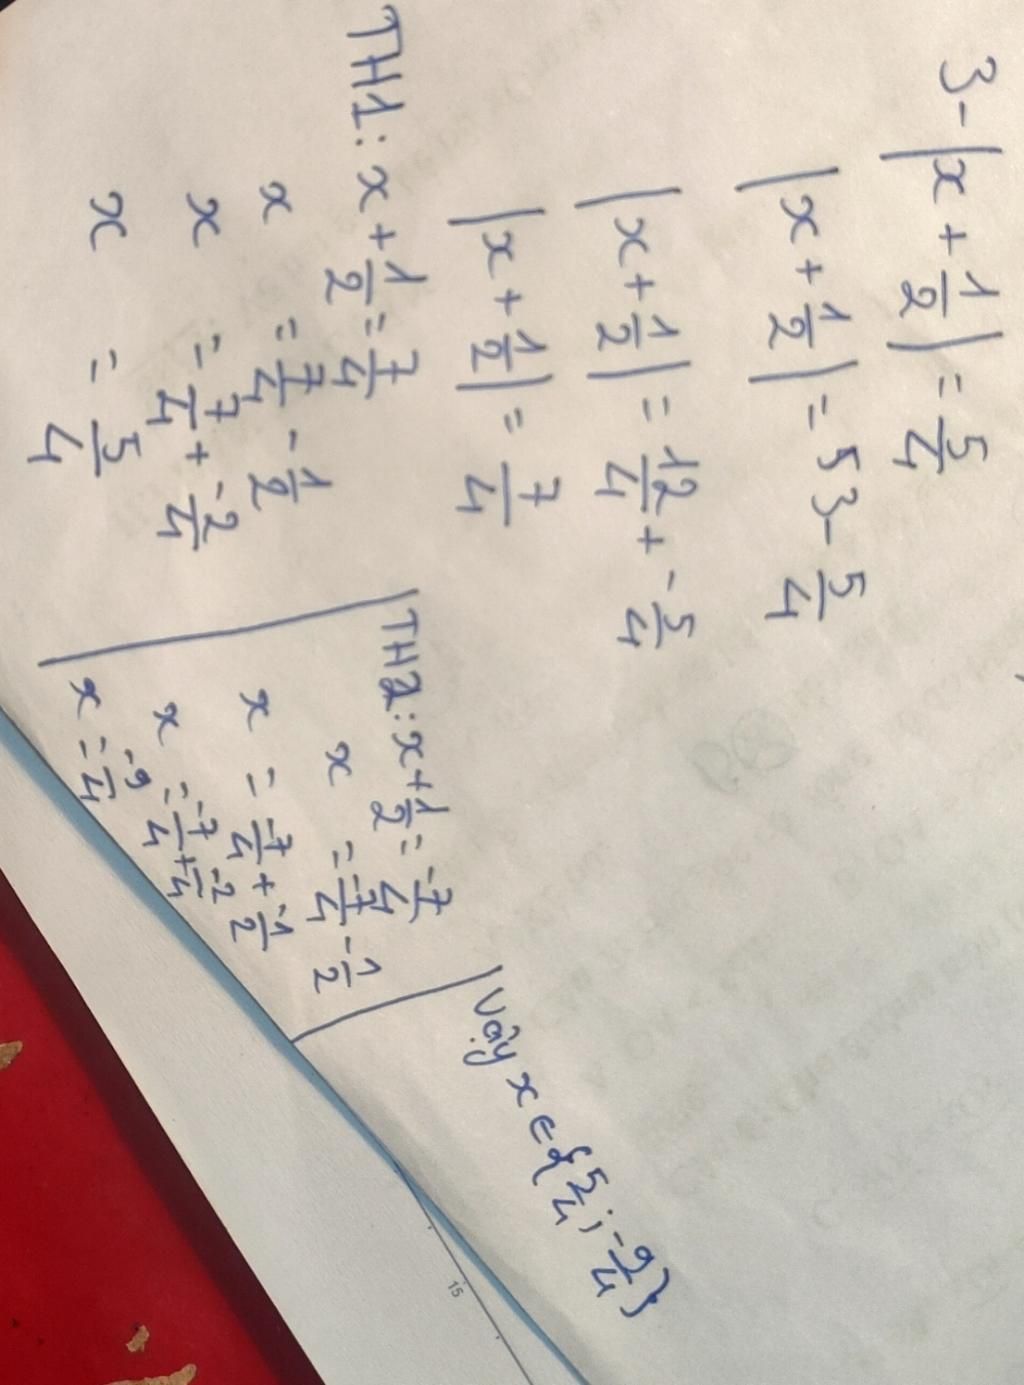 3 - |x + 1/2| = 5/4
|x + 1/2| = 53 - 5/4
|x + 1/2| = 12/4 + -5/4
|x + 1/2| = 7/4
TH1: x + 1/2 = 7/4
x = 7/4 - 1/2
x = 7/4 + -2/4
x = 5/4
TH2: x + 1/2 = -7/4
x = -7/4 - 1/2
x = -7/4 + -1/2
x = -7/4 + -2/4
x = -9/4
Vậy x ∈ {5/4; -9/4}
15